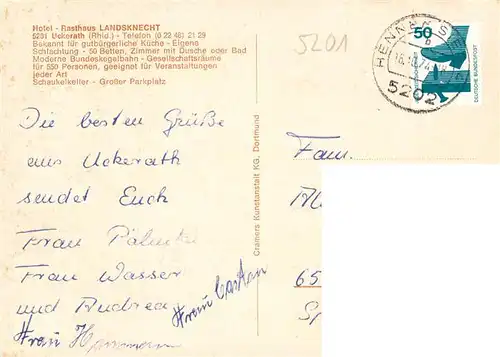 Hotel - Rasthaus LANDSKNECHT
5231 Uckerath (Rhld.) - Telefon (0 22 48) 21 29
Bekannt für gutbürgerliche Küche - Eigene
Schlachtung - 50 Betten, Zimmer mit Dusche oder Bad
Moderne Bundeskegelbahn - Gesellschaftsräume
für 550 Personen, geeignet für Veranstaltungen
jeder Art
Schaukelkeller - Großer Parkplatz
5201
50
DEUTSCHE BUNDESPOST
HENNEF
5202
Die besten Grüße
aus Uckerath
sendet Euch
Frau
Frau Wasser
und Andrea
Frau
Frau
Cramers Kunstanstalt KG, Dortmund
Fam.
65